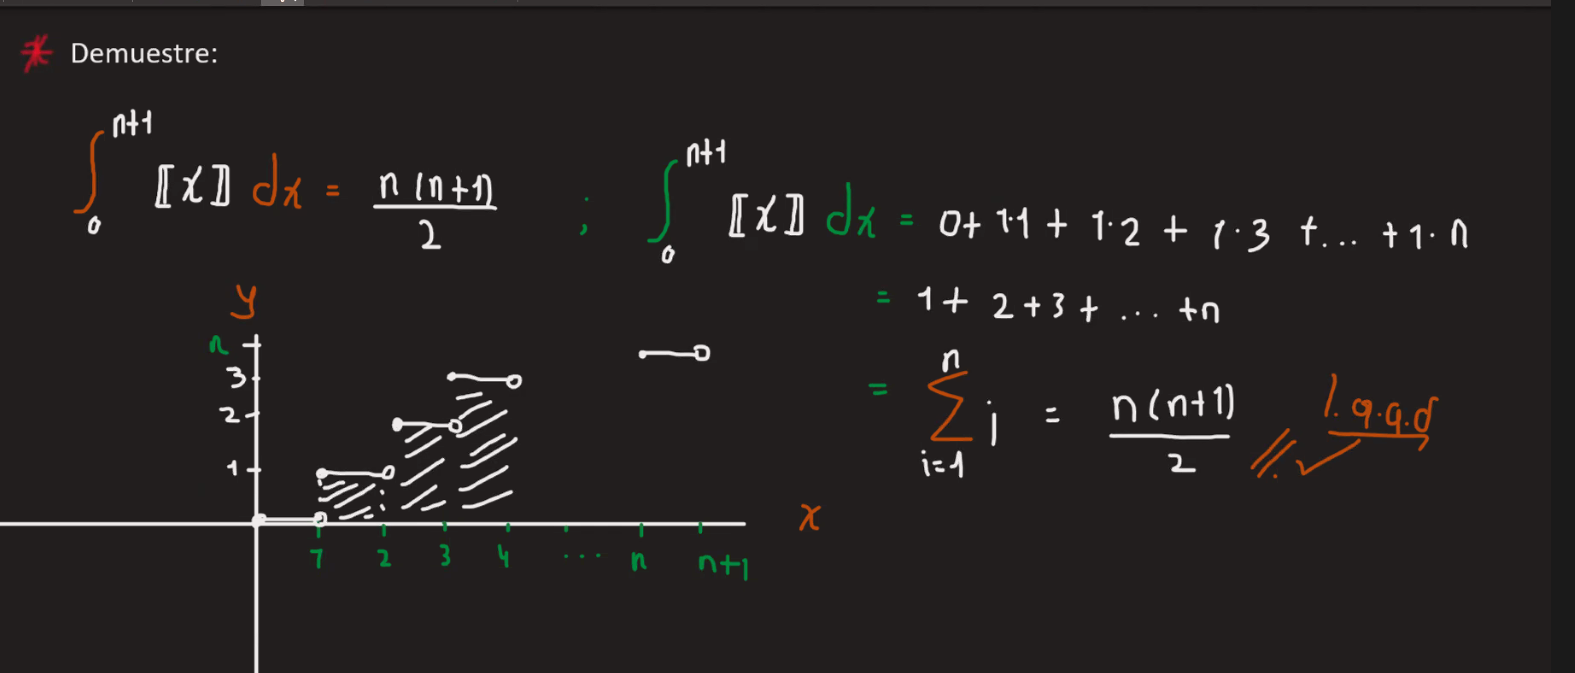 * Demuestre:
∫₀ⁿ⁺¹ ⟦x⟧ dx = n(n+1)/2 ; ∫₀ⁿ⁺¹ ⟦x⟧ dx = 0 + 1·1 + 1·2 + 1·3 + ... + 1·n
= 1 + 2 + 3 + ... + n
= ∑ᵢ₌₁ⁿ i = n(n+1)/2 // ✓ l.q.q.d
y
n
3
2
1
x
1 2 3 4 ... n n+1